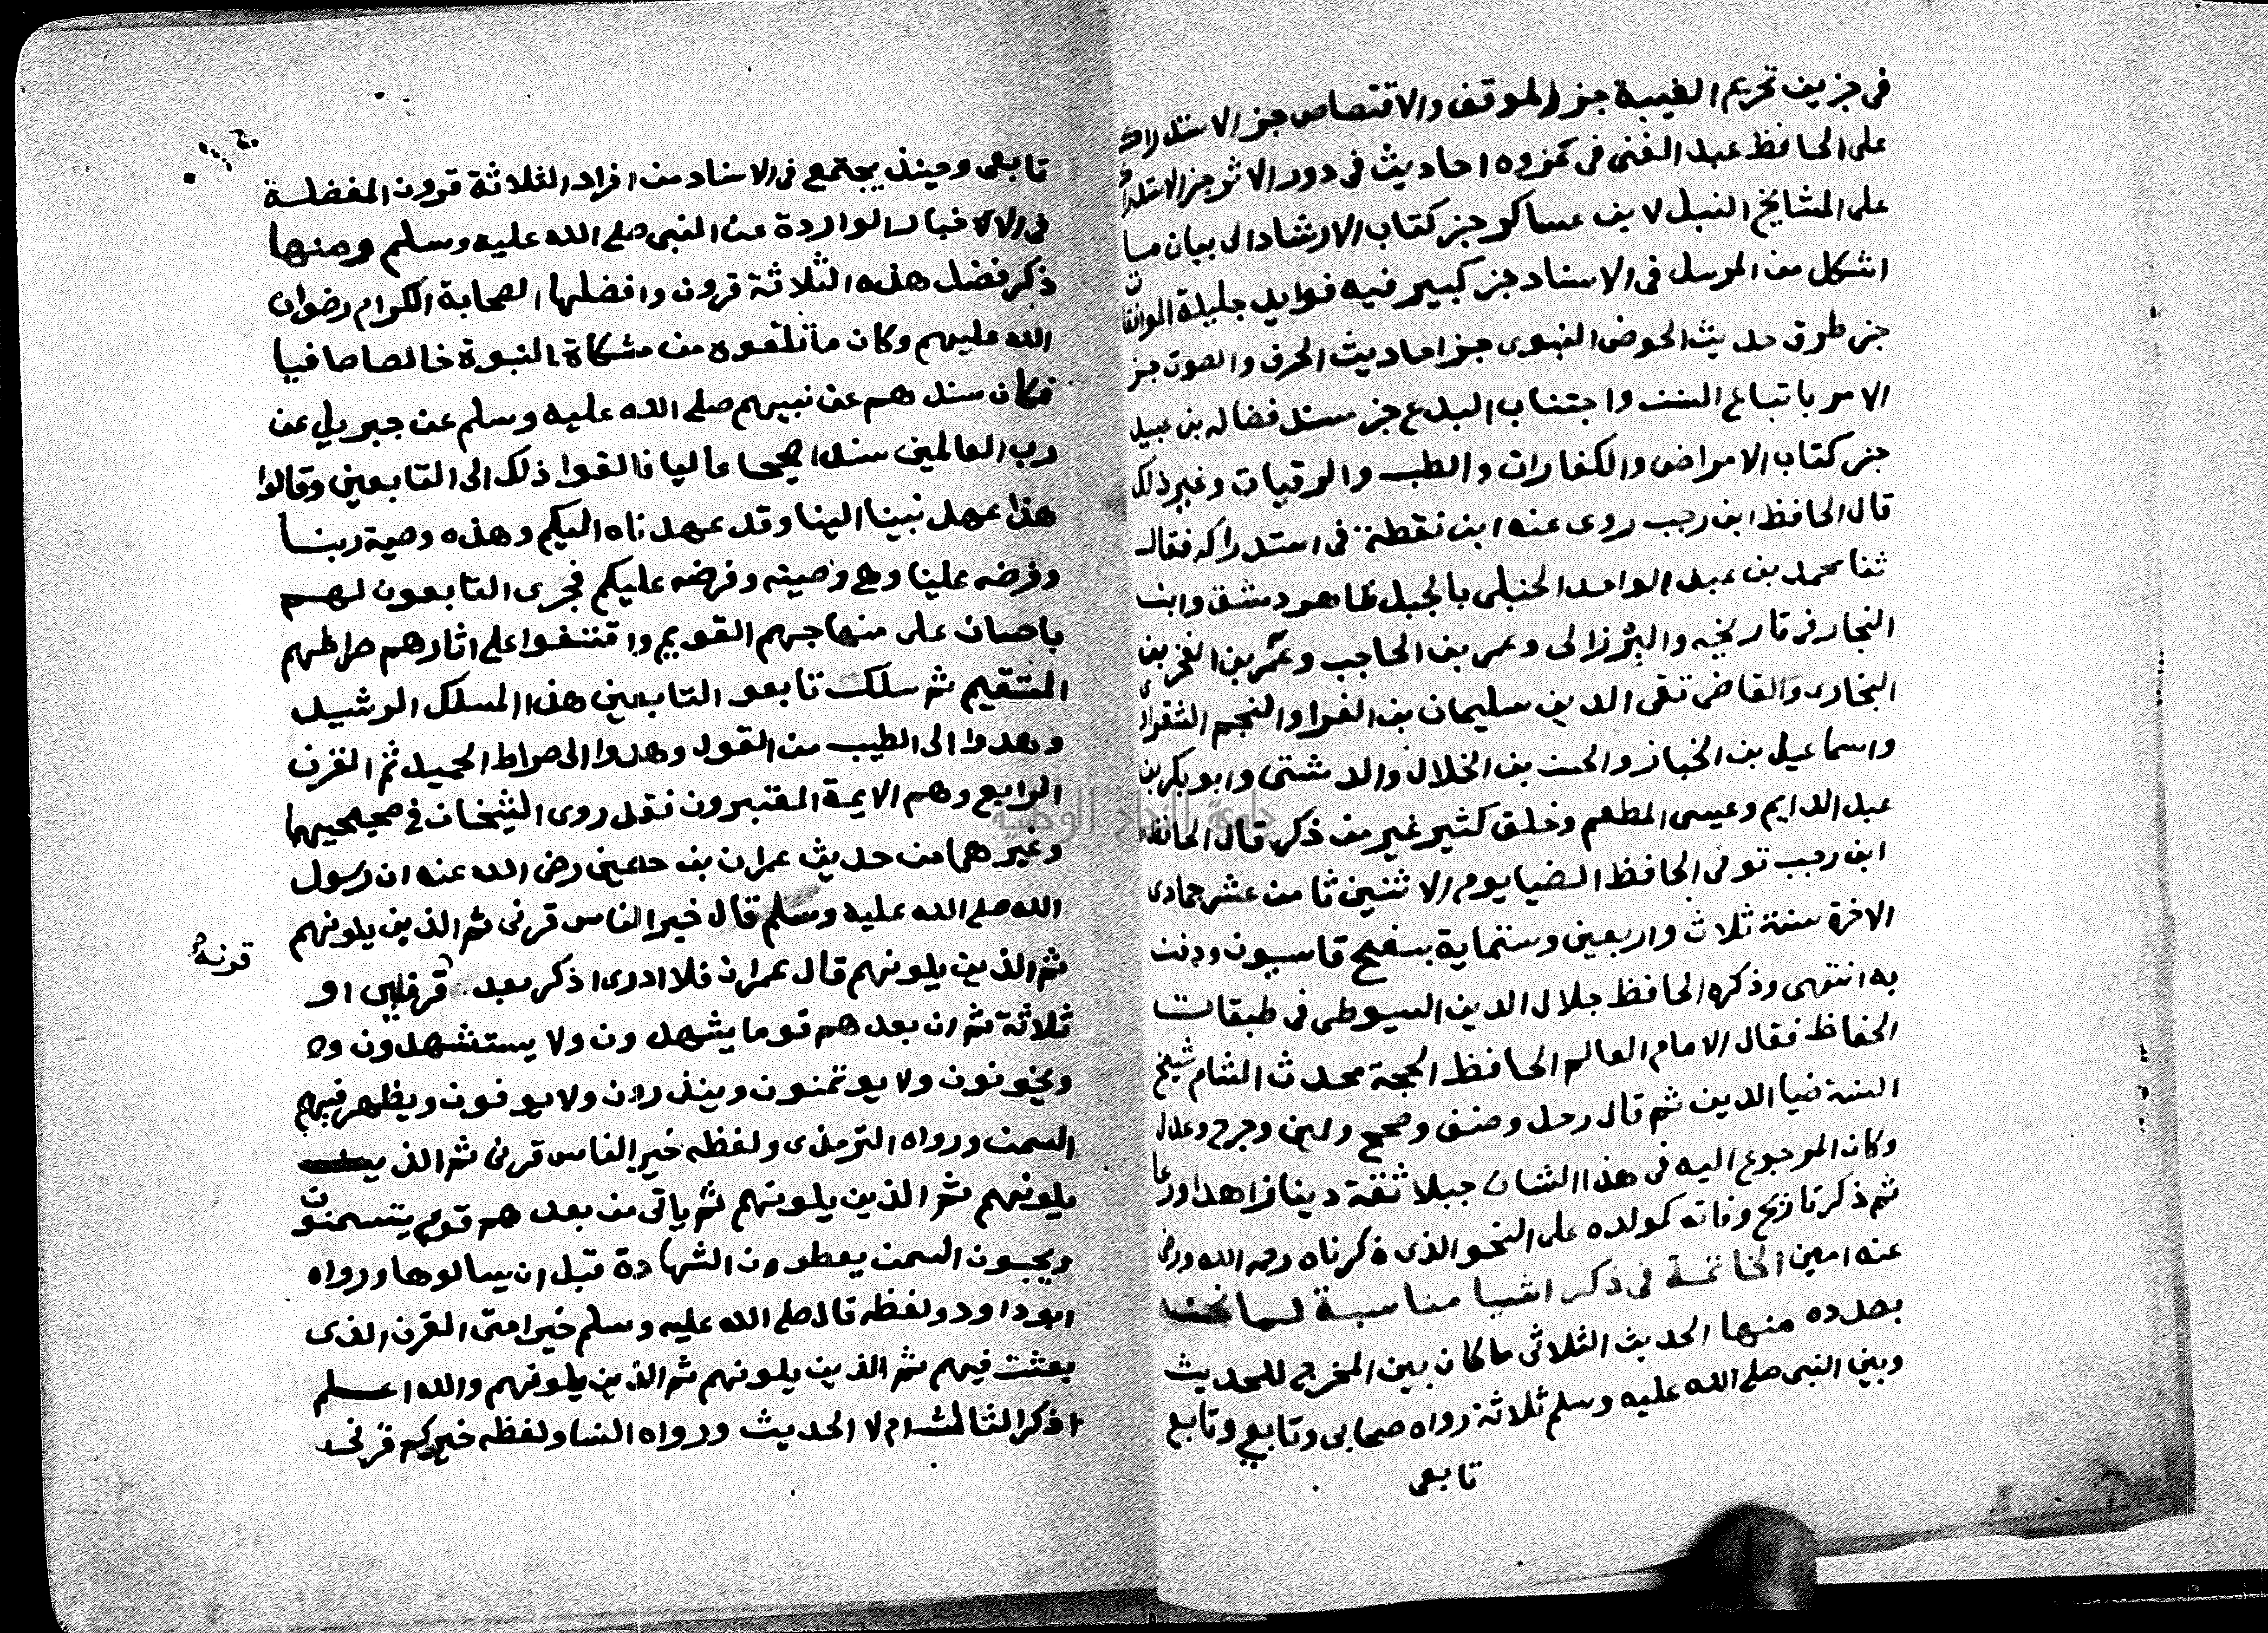 في جزين تحريم الغيبة جزء الموقف والاقتصاص جز الاستدراك
على الحافظ عبد الغني في عزوه احاديث في درر الاثر جز الاستدراك
على المشايخ النبل لابن عساكر جز كتاب الارشاد الى بيان ما
اشكل من المرسل في الاسناد جز كبير فيه فوايد جليلة الموافقات
جز طرق حديث الحوض النبوى جز احاديث الحرف والصوت جز
الامر باتباع السنن واجتناب البدع جز مسند فضاله بن عبيد
جز كتاب الامراض والكفارات والطب والرقيات وغير ذلك
قال الحافظ ابن رجب روى عنه ابن نقطة في استدراكه فقال
ثنا محمد بن عبد الواحد الحنبلى بالجبل ظاهر دمشق وابن
النجار في تاريخه والبرزالى وعمر بن الحاجب وعمر بن الفخر بن
البخارى والقاضى تقى الدين سليمان بن الفرا والنجم الشقراوى
واسماعيل بن الخباز والحسن بن الخلال والدشتى وابو بكر بن
عبد الدايم وعيسى المطعم وخلق كثير غير من ذكر قال الحافظ
ابن رجب توفى الحافظ الضيا يوم الاثنين ثامن عشر جمادى
الاخرة سنة ثلاث واربعين وستماية بسفح قاسيون ودفن
به انتهى وذكره الحافظ جلال الدين السيوطى في طبقات
الحفاظ فقال الامام العالم الحافظ الحجة محدث الشام شيخ
السنة ضيا الدين ثم قال رحل وصنف وصحح ولين وجرح وعدل
وكان المرجوع اليه في هذا الشان جبلا ثقة دينا زاهدا ورعا
ثم ذكر تاريخ وفاته كمولده على النحو الذى ذكرناه رحمه الله ورضى
عنه امين الخاتمة في ذكر اشيا مناسبة لما نحن
بصدده منها الحديث الثلاثى ما كان بين المخرج للحديث
وبين النبى صلى الله عليه وسلم ثلاثة رواه صحابى وتابعي وتابع
تابعى
تابعى وحينئذ يجتمع في الاسناد من افراد الثلاثة قرون المفضلة
في الاخبار الواردة عن النبى صلى الله عليه وسلم ومنها
ذكر فضل هذه الثلاثة قرون وافضلها الصحابة الكرام رضوان
الله عليهم وكان ما تلقوه من مشكاة النبوة خالصا صافيا
فكان سندهم عن نبيهم صلى الله عليه وسلم عن جبريل عن
رب العالمين سندا صحيحا عاليا فالقوا ذلك الى التابعين وقالوا
هذا عهد نبينا الينا وقد عهدناه اليكم وهذه وصية ربنا
وفرضه علينا وهي وصيته وفرضه عليكم فجرى التابعون لهم
باحسان على منهاجهم القويم واقتفوا على اثارهم صراطهم
المستقيم ثم سلك تابعو التابعين هذا المسلك الرشيد
وهدوا الى الطيب من القول وهدوا الى صراط الحميد ثم القرن
الرابع وهم الايمة المعتبرون فقد روى الشيخان في صحيحيهما
وغيرهما من حديث عمران بن حصين رضى الله عنه ان رسول
الله صلى الله عليه وسلم قال خير الناس قرنى ثم الذين يلونهم
ثم الذين يلونهم قال عمران فلا ادرى اذكر بعد قرنين او
قرنه
ثلاثة ثم ان بعدهم قوما يشهدون ولا يستشهدون
ويخونون ولا يوتمنون وينذرون ولا يوفون ويظهر فيهم
السمن ورواه الترمذى ولفظه خير الناس قرنى ثم الذين
يلونهم ثم الذين يلونهم ثم ياتى من بعدهم قوم يتسمنون
ويحبون السمن يعطون الشهادة قبل ان يسالوها ورواه
ابو داود ولفظه قال صلى الله عليه وسلم خير امتى القرن الذى
بعثت فيهم ثم الذين يلونهم ثم الذين يلونهم والله اعلم
اذكر الثالث ام لا الحديث ورواه النسا ولفظه خيركم قرنى
جامعة النجاح الوطنية